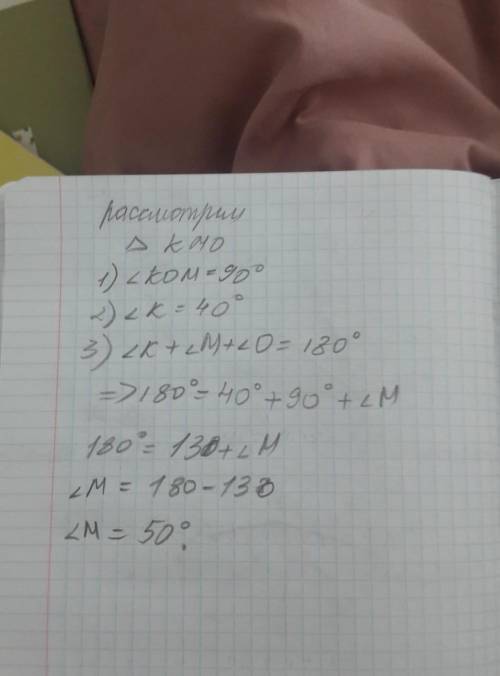 рассмотрим
△ КМО
1) ∠KOM = 90°
2) ∠K = 40°
3) ∠K + ∠M + ∠O = 180°
=> 180° = 40° + 90° + ∠M
180° = 130 + ∠M
∠M = 180 - 130
∠M = 50°.